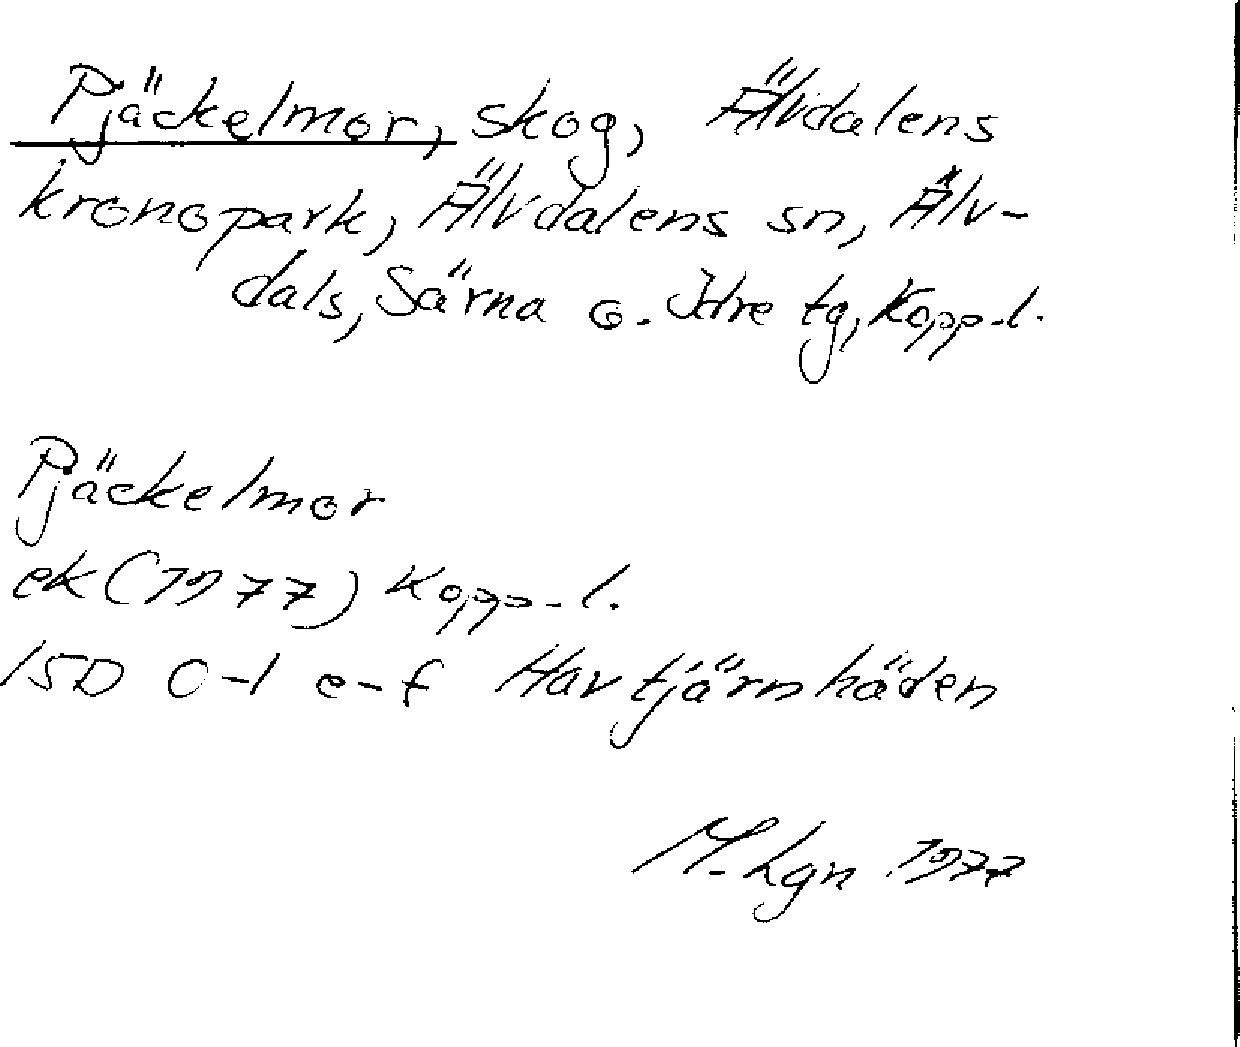 Pjäckelmor, skog, Älvdalens
kronopark, Älvdalens sn, Älv-
dals, Särna o. Idre tg, Kopp.l.
Pjäckelmor
ek (1977) Kopp-l.
15D 0-1 e-f Havtjärnhäden
M. Lgn 1977